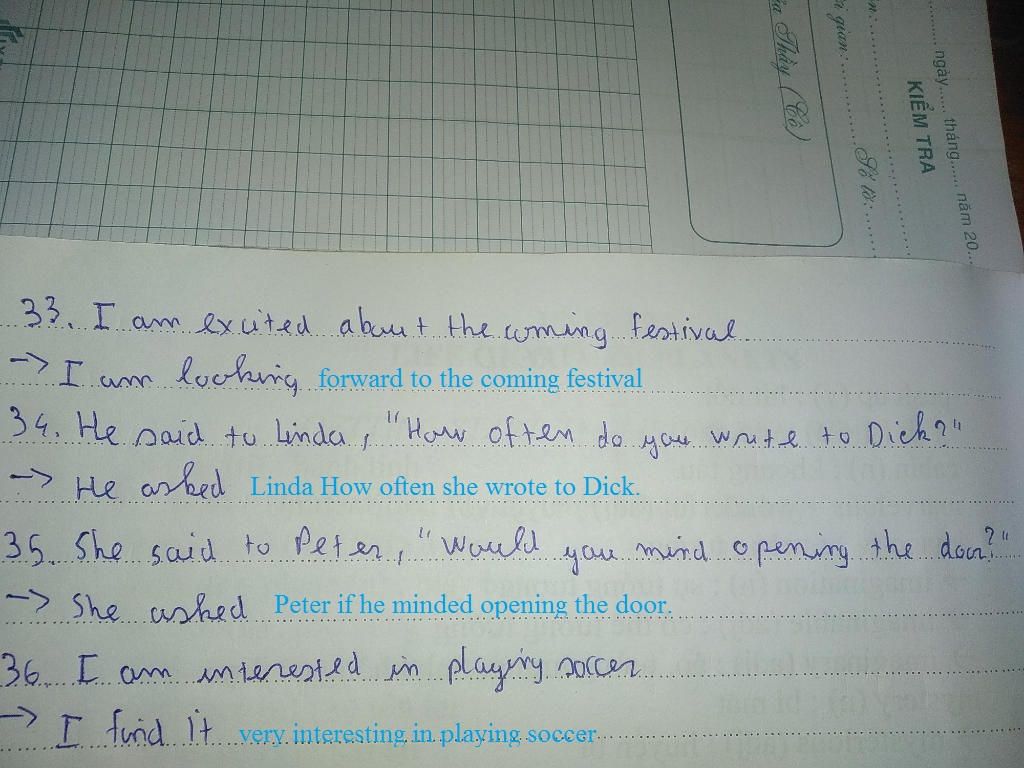 ngày...... tháng....... năm 20...
KIỂM TRA
33. I am excited about the coming festival.
-> I am looking forward to the coming festival
34. He said to Linda, "How often do you write to Dick?"
-> He asked Linda How often she wrote to Dick.
35. She said to Peter, "Would you mind opening the door?"
-> She asked Peter if he minded opening the door.
36. I am interested in playing soccer
-> I find it very interesting in playing soccer